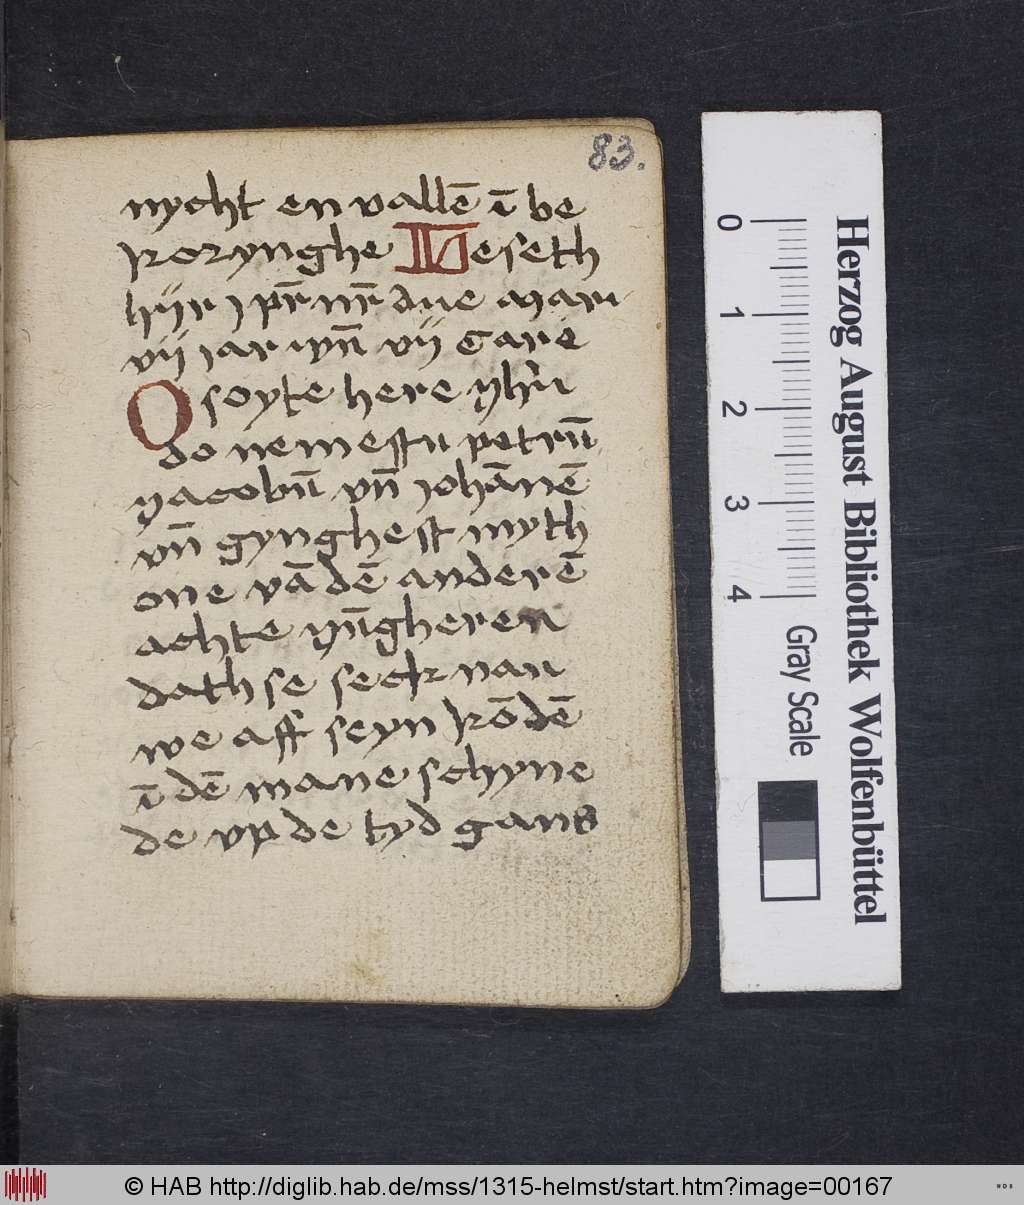 83.
nycht en vallē ī be
korynghe Leseth
hiir i pr̄ nr̄ aue mari
vij iar vn̄ vij carē
O soyte here yhū
do nemestu petrū
yacobū vn̄ iohānē
vn̄ gynghest myth
one vā dē anderē
achte yūgheren
dath se seck nan
we aff seyn kōdē
ī dē mane schyne
de vp de tyd gans
Herzog August Bibliothek Wolfenbüttel
0 1 2 3 4 Gray Scale
© HAB http://diglib.hab.de/mss/1315-helmst/start.htm?image=00167